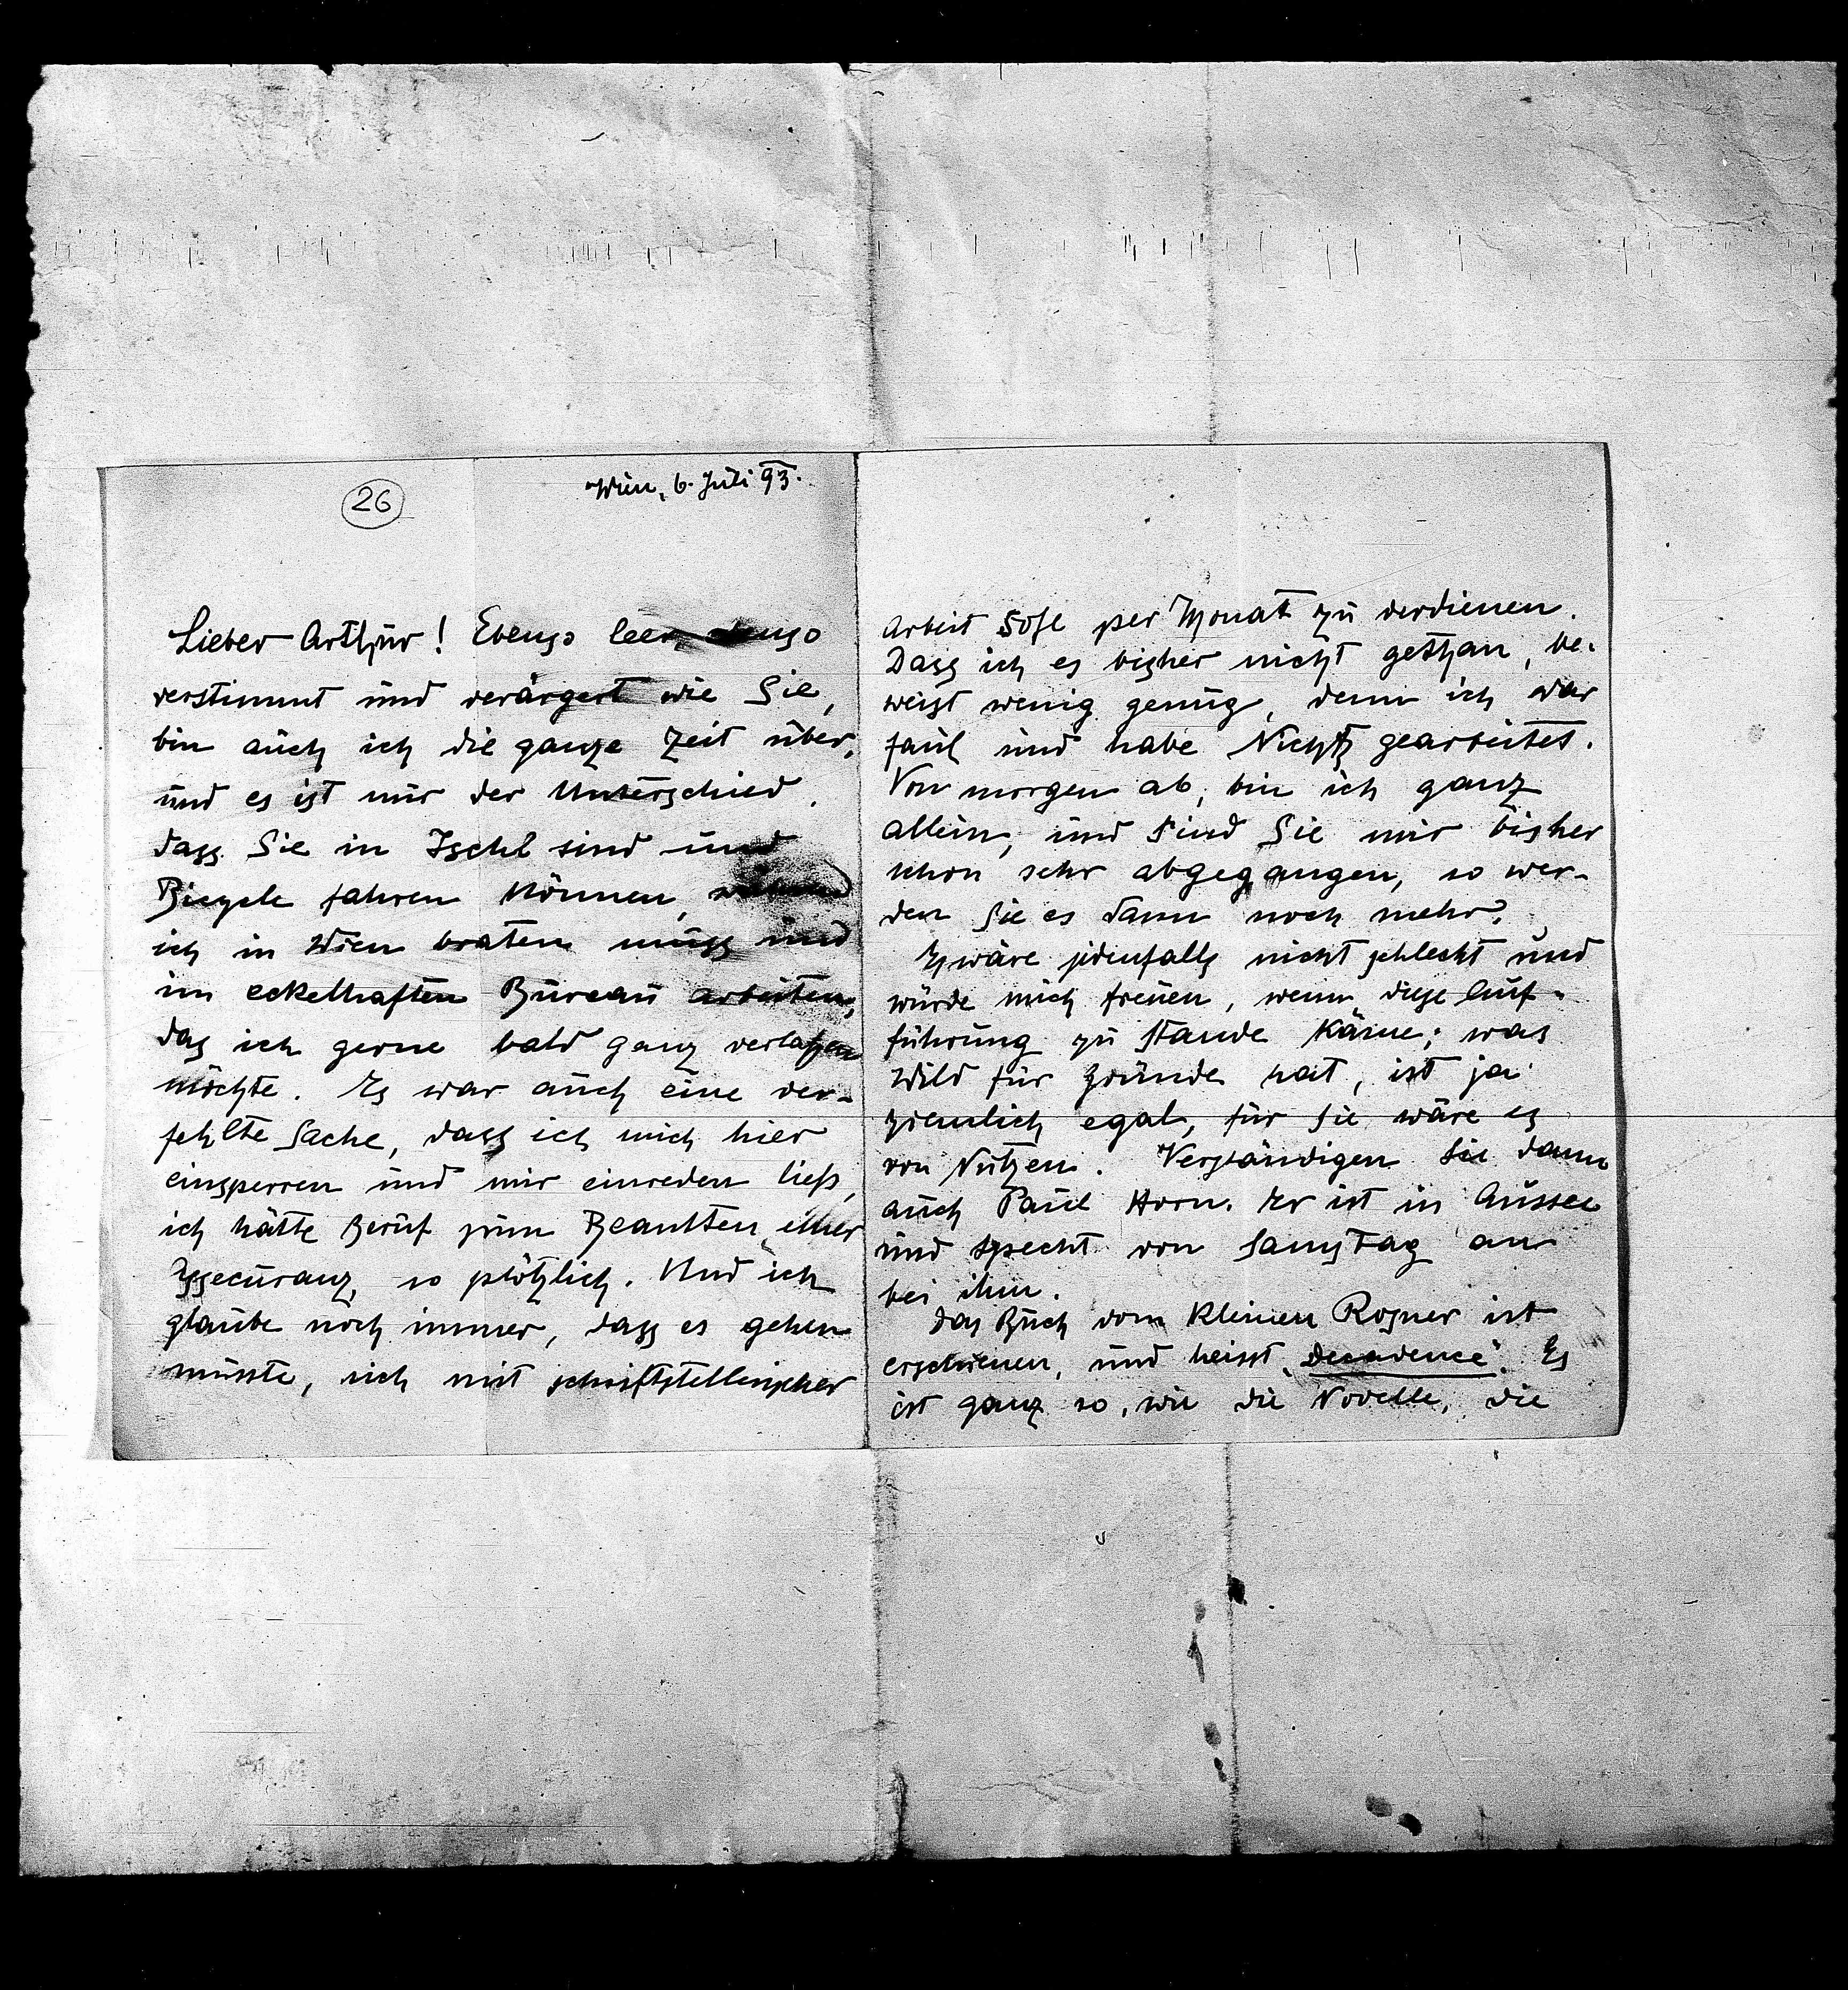 26
Wien, 6. Juli 93.
Lieber Arthur! Ebenso leer, ebenso
verstimmt und verärgert wie Sie,
bin auch ich die ganze Zeit über,
und es ist nur der Unterschied,
dass Sie in Ischl sind und
Bicycle fahren können, während
ich in Wien braten muss und
im eckelhaften Bureau arbeiten,
das ich gerne bald ganz verlassen
möchte. Es war auch eine ver-
fehlte Sache, dass ich mich hier
einsperren und mir einreden ließ,
ich hätte Beruf zum Beamten einer
Assecuranz, so plötzlich. Und ich
glaube noch immer, dass es gehen
müsste, sich mit schriftstellerischer
Arbeit 50 fl per Monat zu verdienen.
Dass ich es bisher nicht gethan, be-
weist wenig genug, denn ich war
faul und habe Nichts gearbeitet.
Von morgen ab, bin ich ganz
allein, und sind Sie mir bisher
schon sehr abgegangen, so wer-
den Sie es dann noch mehr.
Es wäre jedenfalls nicht schlecht und
würde mich freuen, wenn diese Auf-
führung zu stande käme; was
Wild für Gründe hat, ist ja
ziemlich egal, für Sie wäre es
von Nutzen. Verständigen Sie dann
auch Paul Horn. Er ist in Aussee
und Specht von Samstag an
bei ihm.
Das Buch vom kleinen Rosner ist
erschienen, und heisst „Decadence“. Es
ist ganz so, wie die Novelle, die